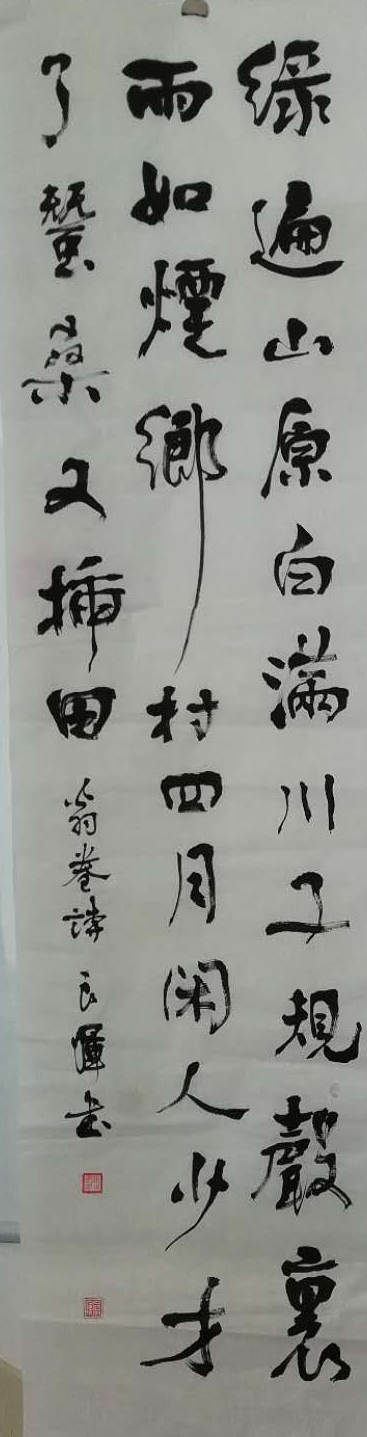 綠遍山原白滿川子規聲裏
雨如煙鄉村四月閑人少才
了蠶桑又插田 翁卷詩 良暉書